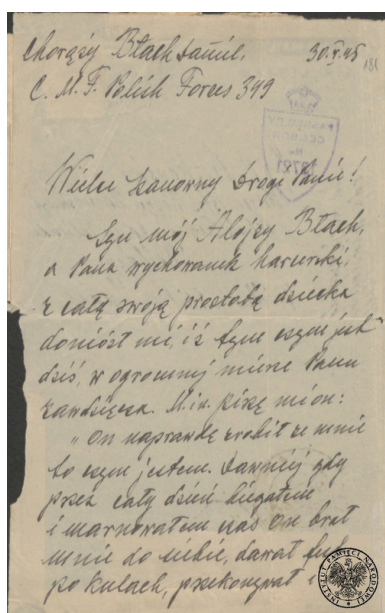 Chorąży Błach Daniel.
30.V.45
181
C. M. F. Polish Forces 349
Wielce Szanowny Drogi Panie!
Syn mój Alojzy Błach,
a Pana wychowanek harcerski,
z całą swoją prostotą dziecka
doniósł mi, iż tym czym jest
dziś, w ogromnej mierze Panu
zawdzięcza. M.in. pisze mi on:
„On naprawdę zrobił ze mnie
to czym jestem. Dawniej gdy
przez cały dzień biegałem
i marnowałem czas On brał
mnie do siebie, dawał
po kulach, przekonywał
INSTYTUT PAMIĘCI NARODOWEJ